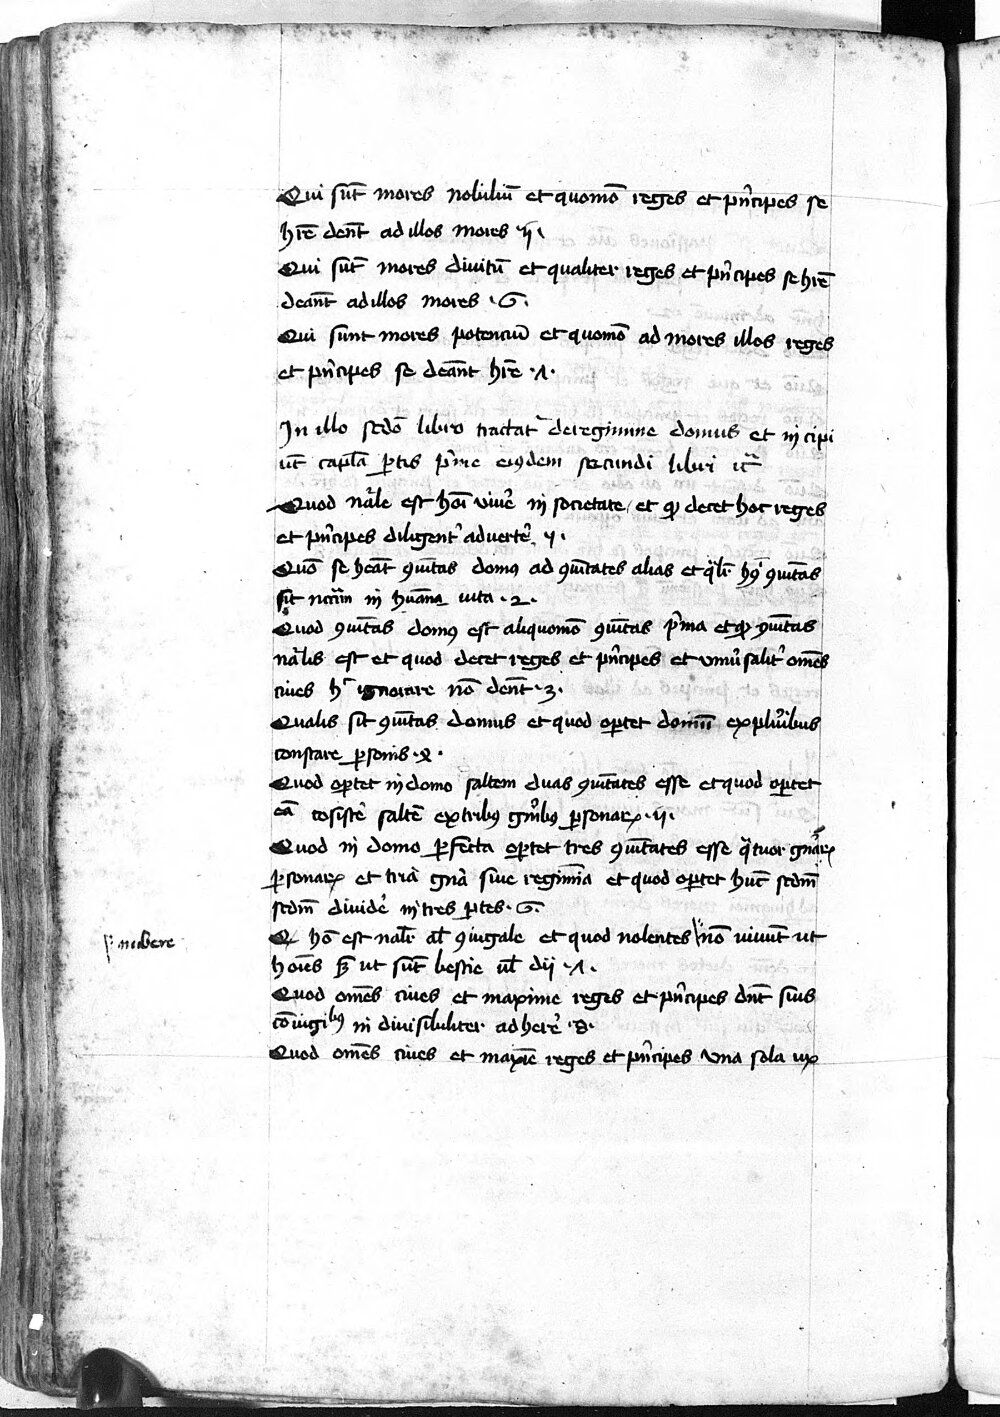 Qui sūt mores nobiliū et quomō reges et pͥncipes se
hr̄e den̄t ad illos mores ij
Qui sūt mores diuitū et qualiter reges et pͥncipes se hr̄e
deān̄t ad illos mores · 6 ·
Qui sunt mores potenciū et quomō ad mores illos reges
et pͥncipes se deān̄t hr̄e · 7 ·
In illo sedō libro tractat᷑ de regimine domus et incipi
ūt capl̄a ꝑtis pͥme eiusdem secundi libri
Quod nāle est hōi viuē in societate et ꝙ decet hoc reges
et pͥncipes diligent᷑ aduertē
Quō se heān̄t ꝯuītas domꝰ ad ꝯuītates alias et qͣlr̄ hꝰ ꝯuītas
sit nēcīa in huāna uita · 2 ·
Quod ꝯuītas domꝰ est aliquomō ꝯuītas pͥma et ꝙ ꝯuītas
nālis est et quod decet reges et pͥncipes et vniūsalit᷑ omēs
ciues h᷑ ignorare nō den̄t · 3 ·
Qualis sit ꝯuītas domus et quod oportet domū ex pluribus
constare ꝑsonis · 4 ·
Quod oꝑtet in domo saltem duas ꝯuītates esse et quod oꝑtet
eā cōsistē saltē ex tribꝰ gn̄ibꝰ ꝑsonaꝝ · ij ·
Quod in domo ꝑfecta oꝑtet tres ꝯuītates esse qͣtuor gn̄aꝝ
ꝑsonaꝝ et tria gn̄a siue regimīa et quod oꝑtet hūc sedm̄
sedm̄ diuidē in tres ꝑtes · 6 ·
Q hō est nālr̄ al̄ ꝯiugale et quod nolentes nō viuūt ut
hoīes ut sūt bestie ul̄ dij · 7 ·
nubere
Quod omēs ciues et maxime reges et pͥncipes dn̄t suis
cōiugibꝰ indiuisibiliter adherē · 8 ·
Quod omēs ciues et maxīe reges et pͥncipes vna sola ux